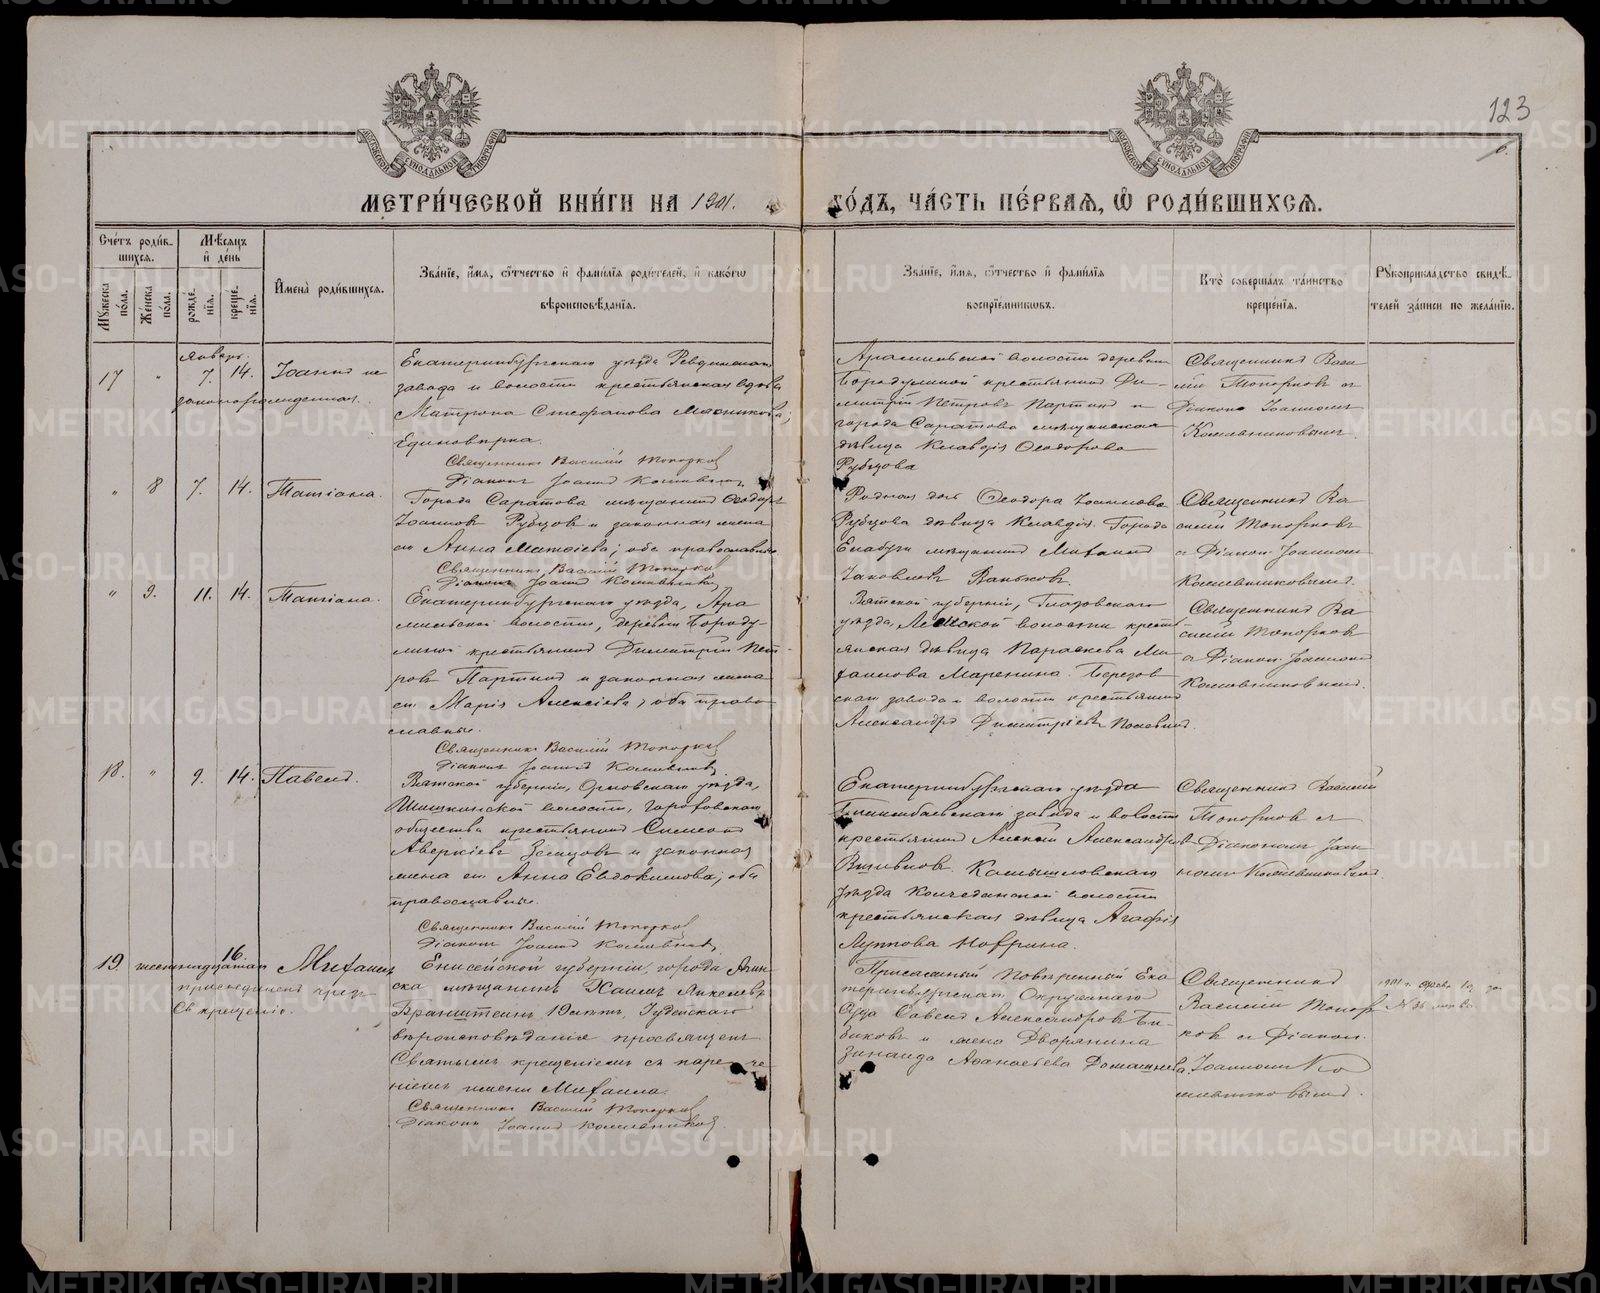 123
6.
МЕТРИ́ЧЕСКОЙ КНИ́ГИ НА 1901. ГО́ДЪ, ЧА́СТЬ ПЕ́РВАЯ, Ѿ РОДИ́ВШИХСЯ.
Сче́тъ роди́вшихся.
Мꙋ́жеска по́ла.
Же́нска по́ла.
Мѣ́сяцъ и де́нь
рожде́нїя.
креще́нїя.
Имена̀ роди́вшихся.
Зва́нїе, и́мя, о́тчество и фами́лїя роди́телей, и како́гѡ
вѣроисповѣ́данїя.
Зва́нїе, и́мя, о́тчество и фами́лїя
воспрїе́мникѡвъ.
Кто̀ соверша́лъ та́инство
креще́нїя.
Рꙋкоприкла́дство свидѣ́-
телей за́писи по жела́нїю.
Январь.
17 " 7. 14. Іоаннъ не
законорожденная.
Екатеринбургскаго уѣзда Ревдинскаго
завода и волости крестьянская вдова
Матрона Стефанова Мясникова;
Единовѣрка.
Священникъ Василій Топорковъ
Діаконъ Іоаннъ Кошевниковъ
Арамильской волости деревни
Бородулиной крестьянинъ Ди-
митрій Петровъ Партинъ и
города Саратова мѣщанская
дѣвица Клавдія Ѳеодорова
Рубцова
Священникъ Васи-
лій Топорковъ съ
Діакономъ Іоанномъ
" 8 7. 14. Татіана.
Города Саратова мѣщанинъ Ѳеодоръ
Іоанновъ Рубцовъ и законная жена
его Анна Матѳіева; оба православные
Священникъ Василій Топорковъ
Родная дочь Ѳеодора Іоаннова
Рубцова дѣвица Клавдія. Города
Елабуги мѣщанинъ Михаилъ
Іаковлевъ Ваньковъ.
Священникъ Ва-
силій Топорковъ
съ Діакон. Іоанном
" 9. 11. 14. Татіана.
Екатеринбургскаго уѣзда, Ара-
мильской волости, деревни Бороду-
линой крестьянинъ Димитрій Пет-
ровъ Партинъ и законная жена
его Марія Алексіева, оба право-
славные.
Священникъ Василій Топорковъ
Вятской губерніи, Глазовскаго
уѣзда, Лемской волости кресть-
янская дѣвица Параскева Ми-
хаилова Маренина. Березов-
скаго завода и волости крестьянинъ
Александръ Димитріевъ
Священникъ Ва-
силій Топорковъ
съ Діакон. Іоанном
18. " 9. 14. Павелъ.
Вятской губерніи, Орловскаго уѣзда,
волости, Гороховскаго
общества крестьянинъ Симеонъ
Аверкіевъ Земцовъ и законная
жена его Анна Евдокимова; оба
православные.
Священникъ Василій Топорковъ
Екатеринбургскаго уѣзда
Билимбаевскаго завода и волости
крестьянинъ Алексій Александровъ
Вшивковъ. Камышловскаго
уѣзда Колчеданской волости
крестьянская дѣвица Агафія
Священникъ Василій
Топорковъ съ
Діакономъ Іоан-
19. шестнадцатаго 16
присоединенъ чрезъ
Св. крещеніе.
Михаилъ
Енисейской губерніи, города Ачин-
ска мѣщанинъ Хаимъ Янкелевъ
Бранштеинъ 19 лѣтъ, Іудейскаго
вѣроисповѣданія просвященъ
Святымъ крещеніемъ съ нарече-
ніемъ имени Михаила.
Священникъ Василій Топорковъ
Присяжный Повѣренный Ека-
теринбургскаго Окружнаго
Суда Савелій Александровъ Би-
биковъ и жена Дворянина
Зинаида Аѳанасьева
Священникъ
Василій Топор-
ковъ съ Діакон.
Іоанномъ